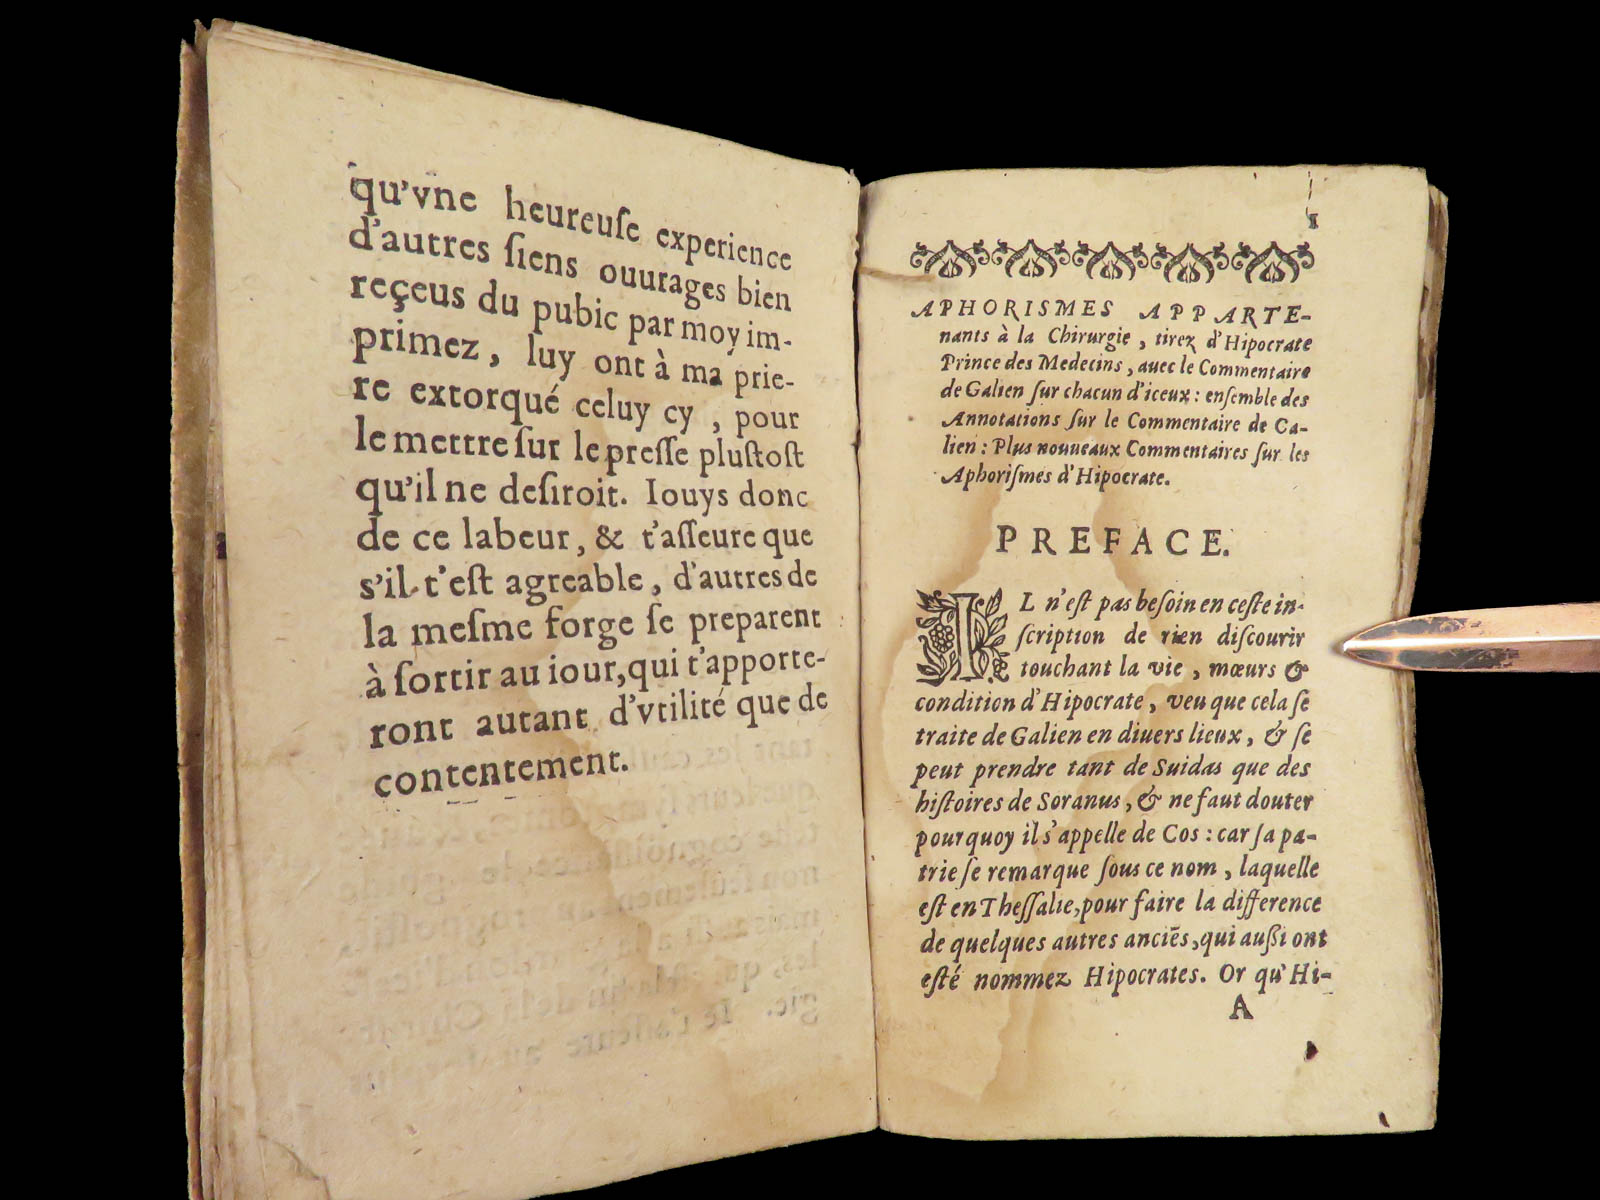 qu'vne heureuſe experience
d'autres ſiens ouurages bien
reçeus du pubic par moy im-
primez, luy ont à ma prie-
re extorqué celuy cy, pour
le mettre ſur le preſſe pluſtoſt
qu'il ne deſiroit. Iouys donc
de ce labeur, & t'aſſeure que
s'il t'eſt agreable, d'autres de
la meſme forge ſe preparent
à ſortir au iour, qui t'apporte-
ront autant d'vtilité que de
contentement.
1
APHORISMES APPARTE-
nants à la Chirurgie, tirez d'Hipocrate
Prince des Medecins, auec le Commentaire
de Galien ſur chacun d'iceux: enſemble des
Annotations ſur le Commentaire de Ga-
lien: Plus nouueaux Commentaires ſur les
Aphoriſmes d'Hipocrate.
PREFACE.
IL n'eſt pas beſoin en ceſte in-
ſcription de rien diſcourir
touchant la vie, mœurs &
condition d'Hipocrate, veu que cela ſe
traite de Galien en diuers lieux, & ſe
peut prendre tant de Suidas que des
hiſtoires de Soranus, & ne faut douter
pourquoy il s'appelle de Cos: car ſa pa-
trie ſe remarque ſous ce nom, laquelle
eſt en Theſſalie, pour faire la difference
de quelques autres anciẽs, qui außi ont
eſté nommez Hipocrates. Or qu'Hi-
A